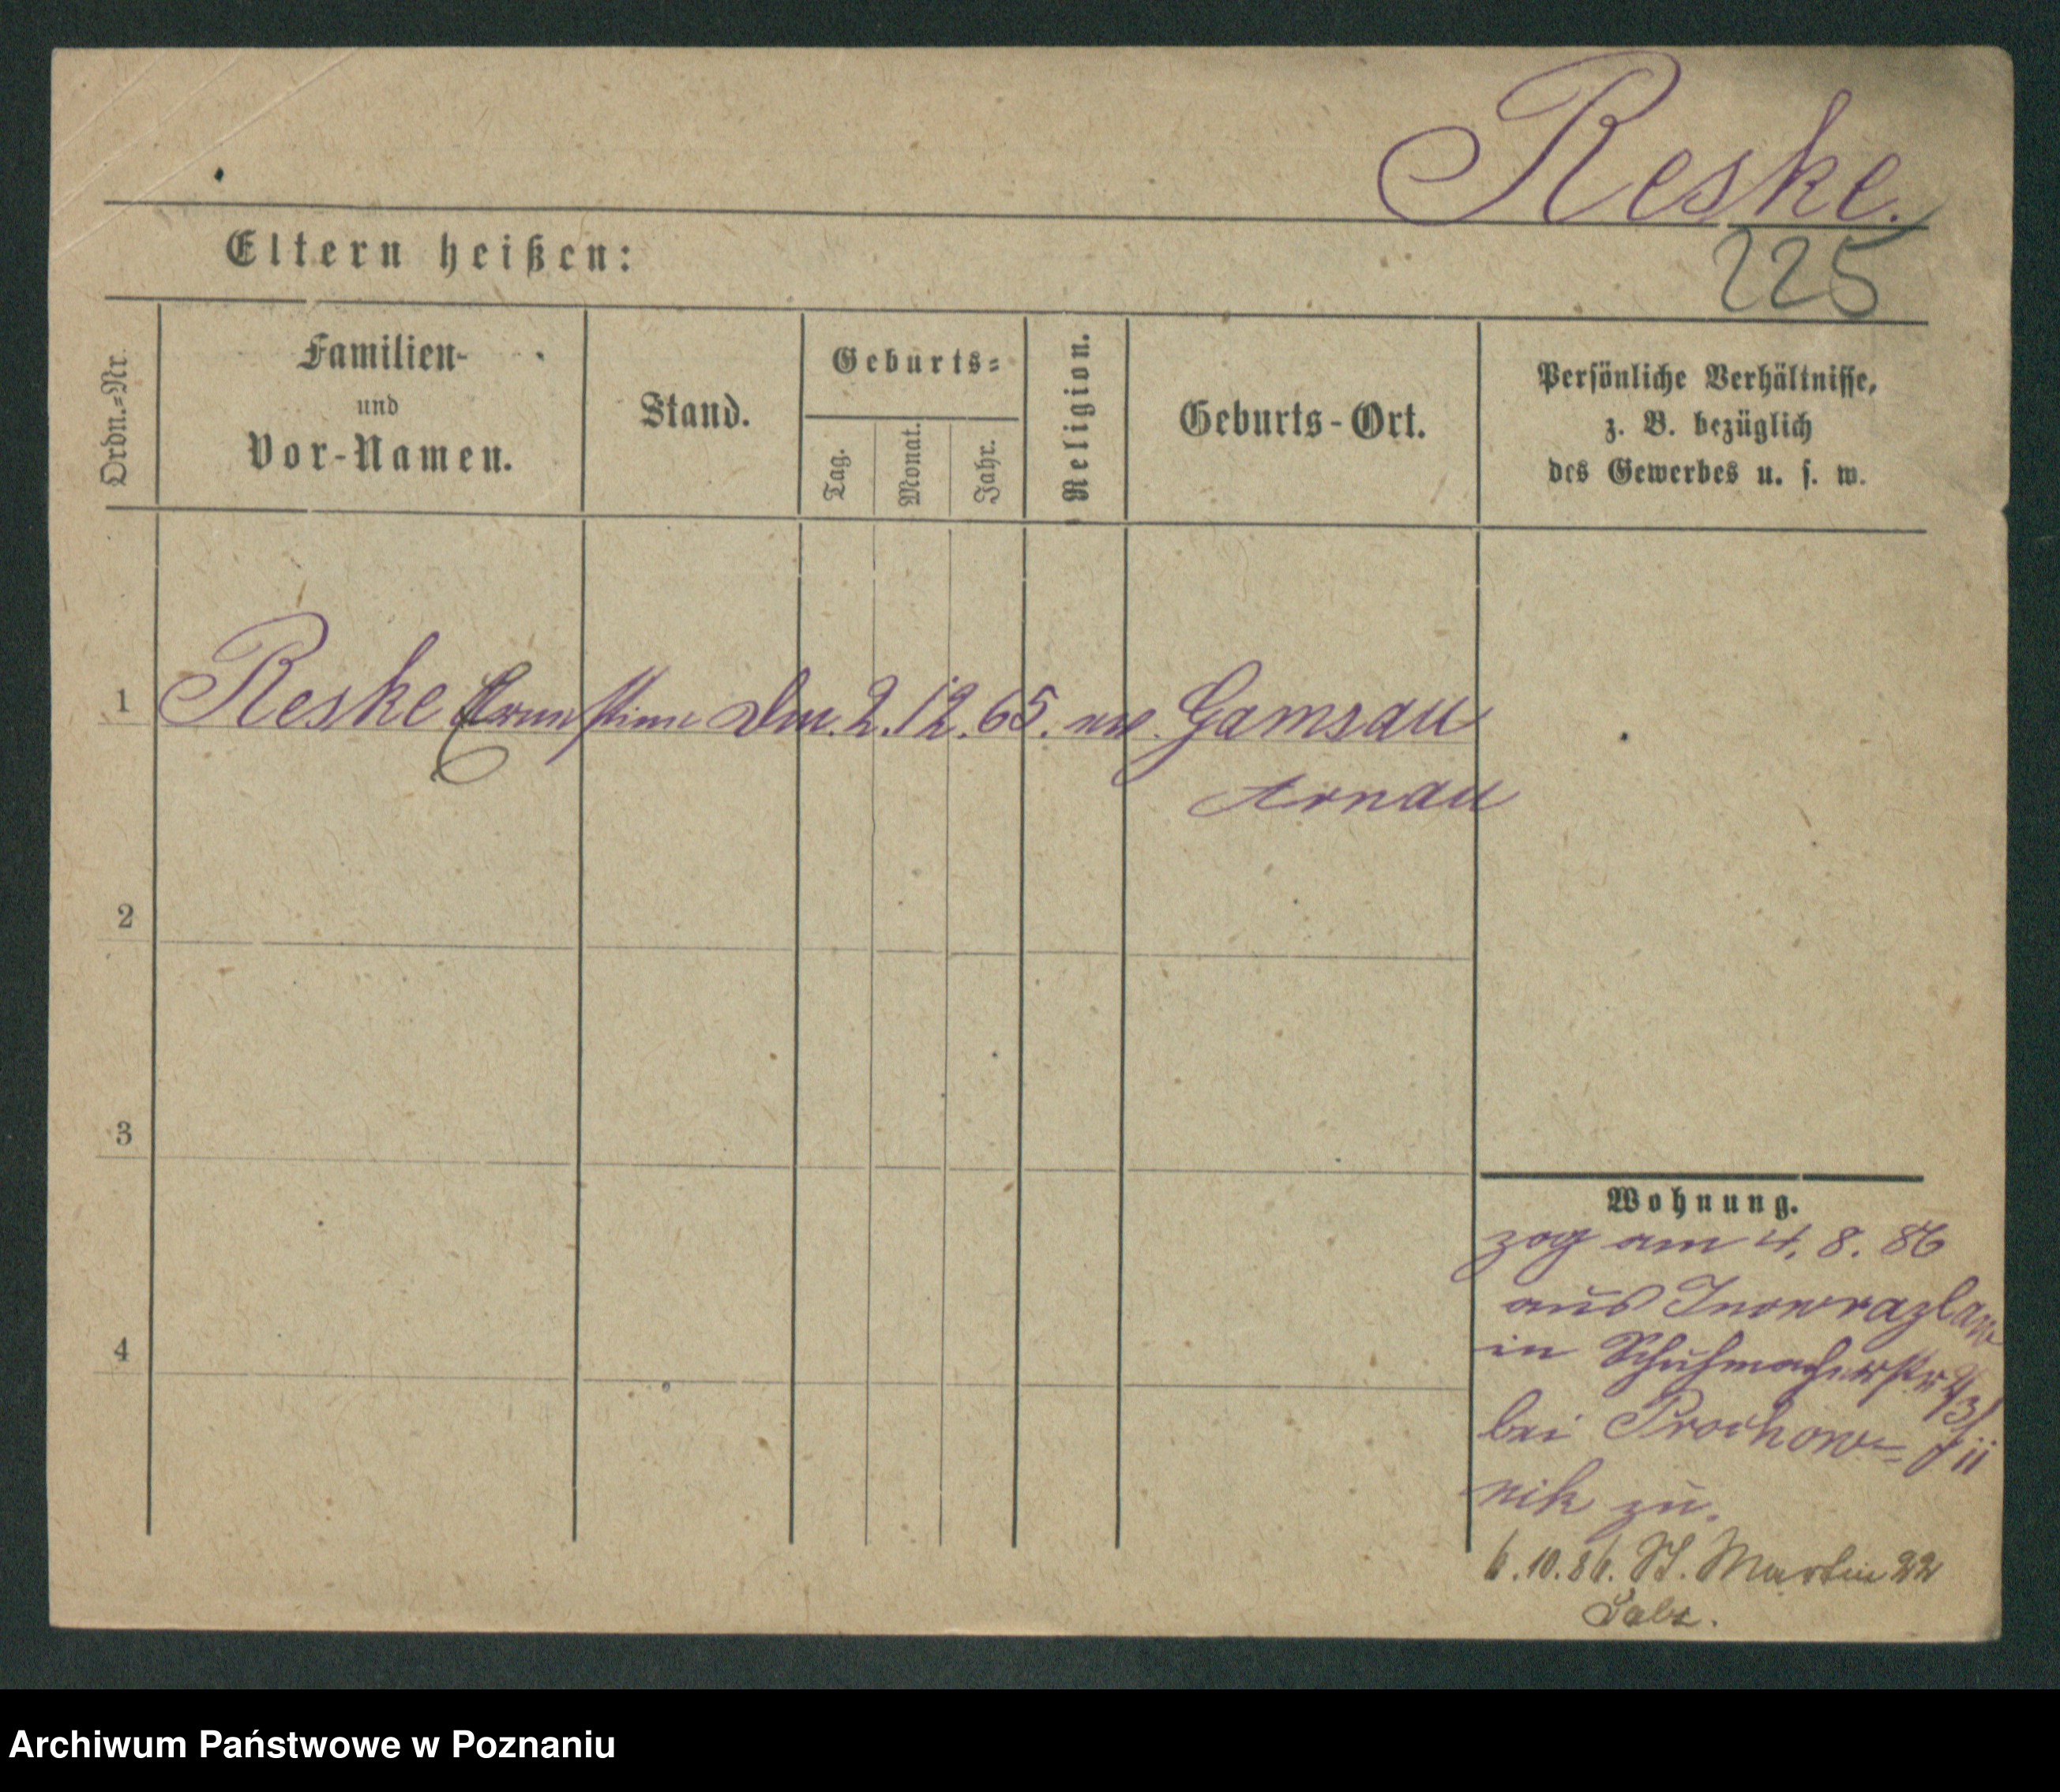 Reske.
225
Eltern heißen:
Ordn.=Nr.
Familien-
und
Vor-Namen.
Stand.
Geburts=
Tag.
Monat.
Jahr.
Religion.
Geburts-Ort.
Persönliche Verhältnisse,
z. B. bezüglich
des Gewerbes u. s. w.
1 Reske Ernestine den 2. 12. 65. ev. Gamsau
Arnau
2
3
4
Wohnung.
zog am 4. 8. 86
aus Inowrazlaw
in Schuhmacherstr
bei Prochow=
nik zu.
6.10.86. St. Martin 22
Archiwum Państwowe w Poznaniu